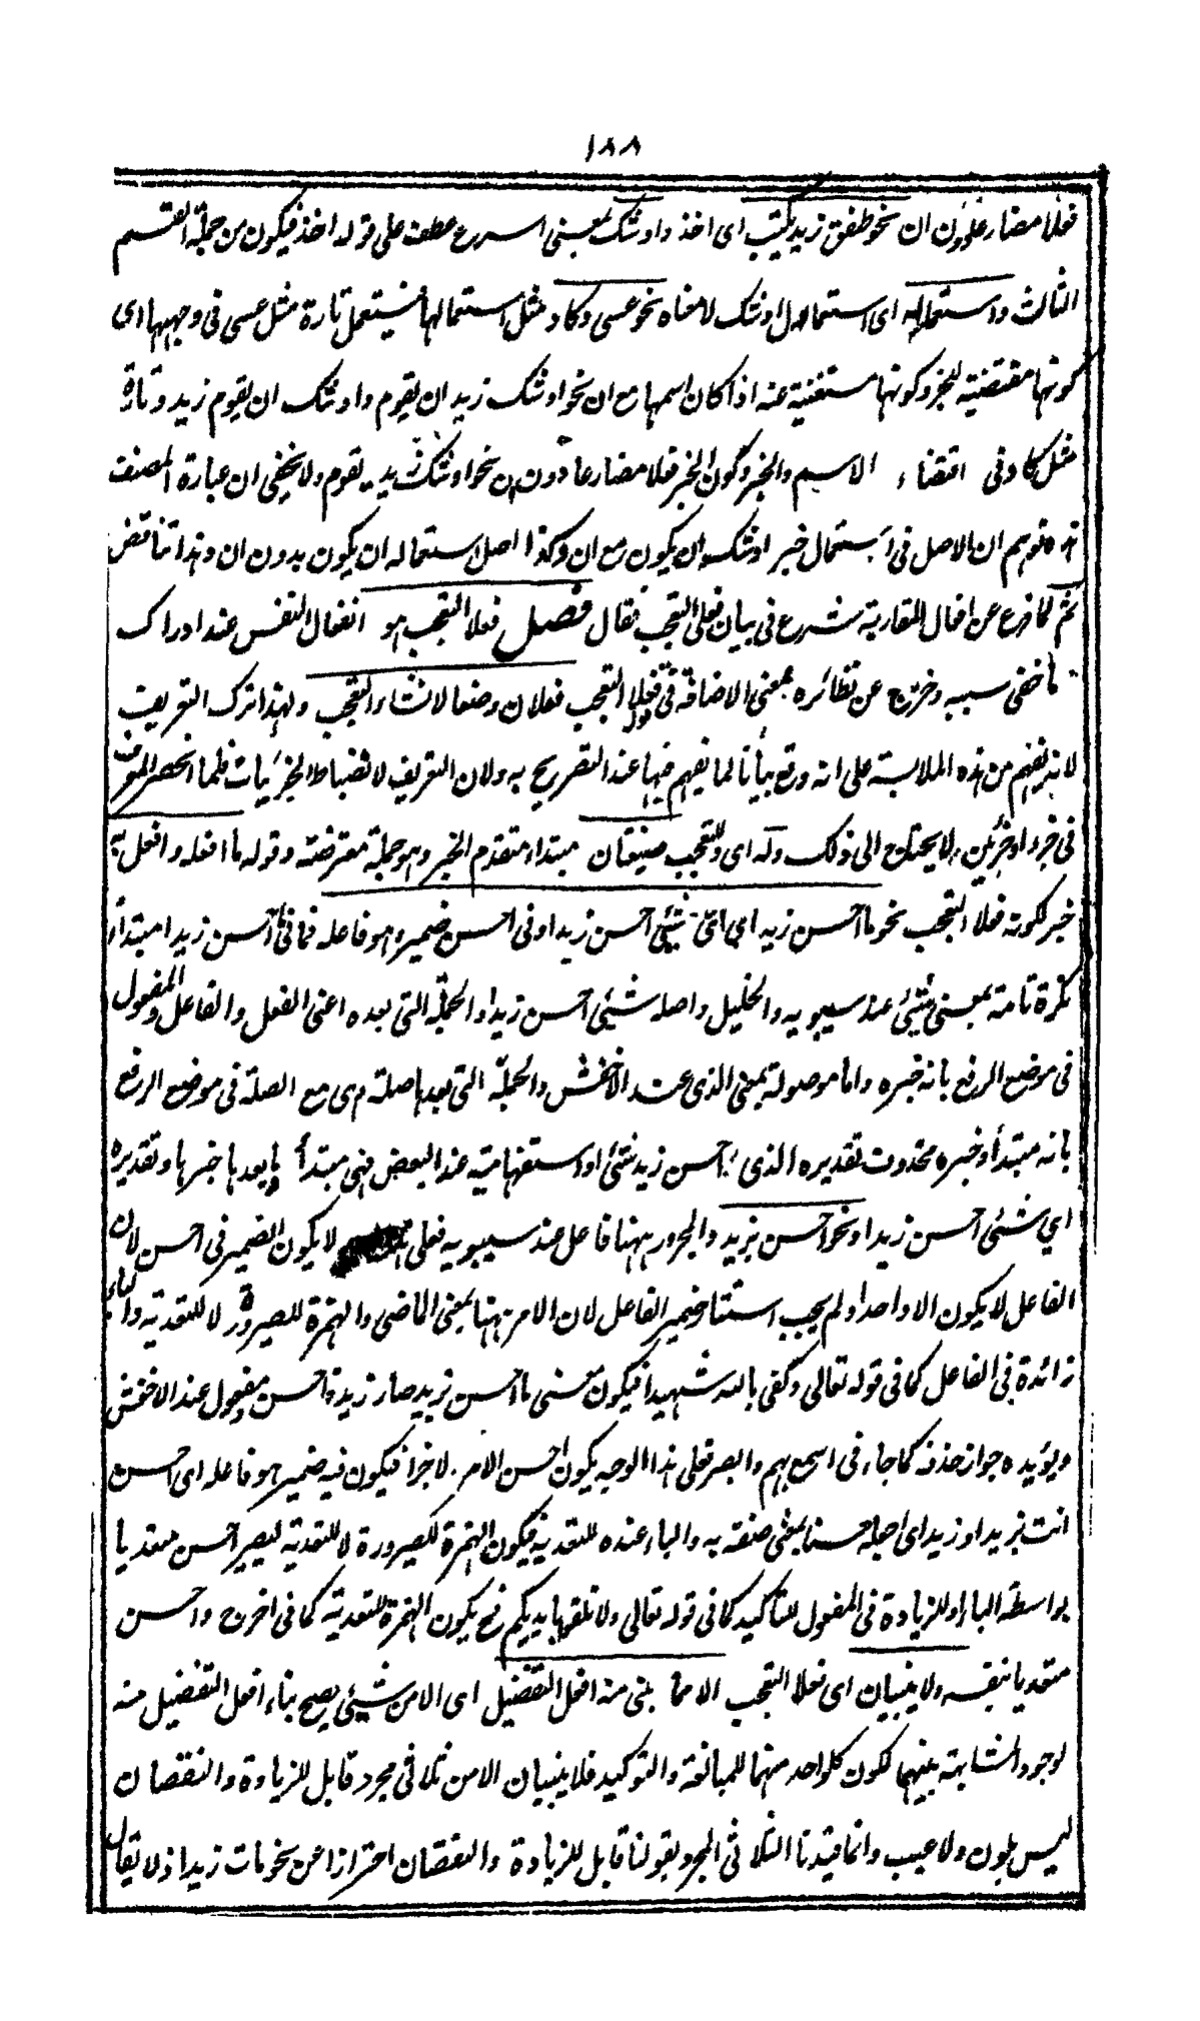 ١٨٨
فعلا مضارعا بدون ان نحو طفق زيد يكتب اى اخذ واوشك بمعنى اسرع عطف على قوله اخذ فيكون من جملة القسم
الثالث واستعماله اى استعمال اوشك لا معناه نحو عسى وكاد مثل استعمالهما فيستعمل تارة مثل عسى فى وجهيها اى
كونها مقتضية للخبر وكونها مستغنية عنه اذا كان اسمها مع ان نحو اوشك زيد ان يقوم واوشك ان يقوم زيد وتارة
مثل كاد فى اقتضاء الاسم والخبر وكون الخبر فعلا مضارعا بدون ان نحو اوشك زيد يقوم ولا يخفى ان عبارة المصنف
هذه توهم ان الاصل فى استعمال خبر اوشك ان يكون مع ان وكذا اصل استعماله ان يكون بدون ان وهذا تناقض
ثم لما فرغ عن افعال المقاربة شرع فى بيان فعلى التعجب فقال فصل فعلا التعجب هو انفعال النفس عند ادراك
ما خفى سببه وخرج عن نظائره بمعنى الاضافة فى فعلا التعجب فعلان وضعا لانشاء التعجب ولهذا ترك التعريف
لانه يفهم من هذه الملابسة على انه وقع بيانا لما يفهم فيها عند التصريح به ولان التعريف لانضباط الجزئيات فلما انحصر المعرف
فى جزء او جزئين لا يحتاج الى ذلك وله اى وللتعجب صيغتان مبتداء متقدم الخبر وهو جملة معترضة وقوله ما افعله وافعل به
خبر لكونه فعلا التعجب نحو ما احسن زيدا اى اىّ شئ احسن زيدا وفى احسن ضمير وهو فاعله فما فى ما احسن زيدا مبتدأ
نكرة تامة بمعنى شئ عند سيبويه والخليل واصله شئ احسن زيدا والجملة التى بعده اعنى الفعل والفاعل والمفعول
فى موضع الرفع بانه خبره واما موصولة بمعنى الذى عند الاخفش والجملة التى بعدها صلة وهى مع الصلة فى موضع الرفع
بانه مبتدأ وخبره محذوف تقديره الذى احسن زيدا شئ او استفهامية عند البعض فهى مبتدأ ما بعدها خبرها وتقديره
اى شئ احسن زيدا ونحو احسن بزيد والمجرور ههنا فاعل عند سيبويه فعلى هذا لا يكون الضمير فى احسن لان
الفاعل لا يكون الا واحدا ولم يجب استتار ضمير الفاعل لان الامر ههنا بمعنى الماضى والهمزة للصيرورة لا للتعدية والباء
زائدة فى الفاعل كما فى قوله تعالى وكفى بالله شهيدا فيكون معنى احسن بزيد صار زيد ذا حسن مفعول عند الاخفش
ويؤيده جواز حذفه كما جاء فى اسمع بهم وابصر فعلى هذا الوجه يكون احسن الامر لا خبرا فيكون فيه ضمير هو فاعله اى احسن
انت بزيد او زيدا اى اجعله حسنا بمعنى صفه به والباء عنده للتعدية فيكون الهمزة للصيرورة لا للتعدية ليصير احسن متعديا
بواسطة الباء او للزيادة فى المفعول للتأكيد كما فى قوله تعالى ولا تلقوا بايديكم فح يكون الهمزة للتعدية كما فى اخرج واحسن
متعديا بنفسه ولا يبنيان اى فعلا التعجب الا مما بنى منه افعل التفضيل اى الا من شئ يصح بناء افعل التفضيل منه
لوجود المشابهة بينهما لكون كل واحد منهما للمبالغة والتوكيد فلا يبنيان الا من ثلاثى مجرد قابل للزيادة والنقصان
ليس بلون ولا عيب وانما قيدنا الثلاثى المجرد بقولنا قابل للزيادة والنقصان احترازا عن نحو مات زيد اذ لا يقال